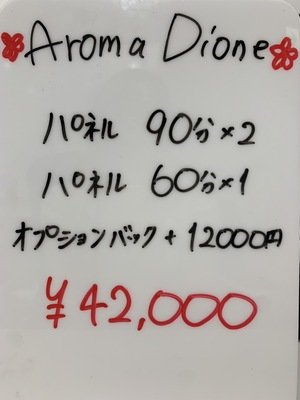 Aroma Dione
パネル 90分×2
パネル 60分×1
オプションバック + 12000円
¥42,000